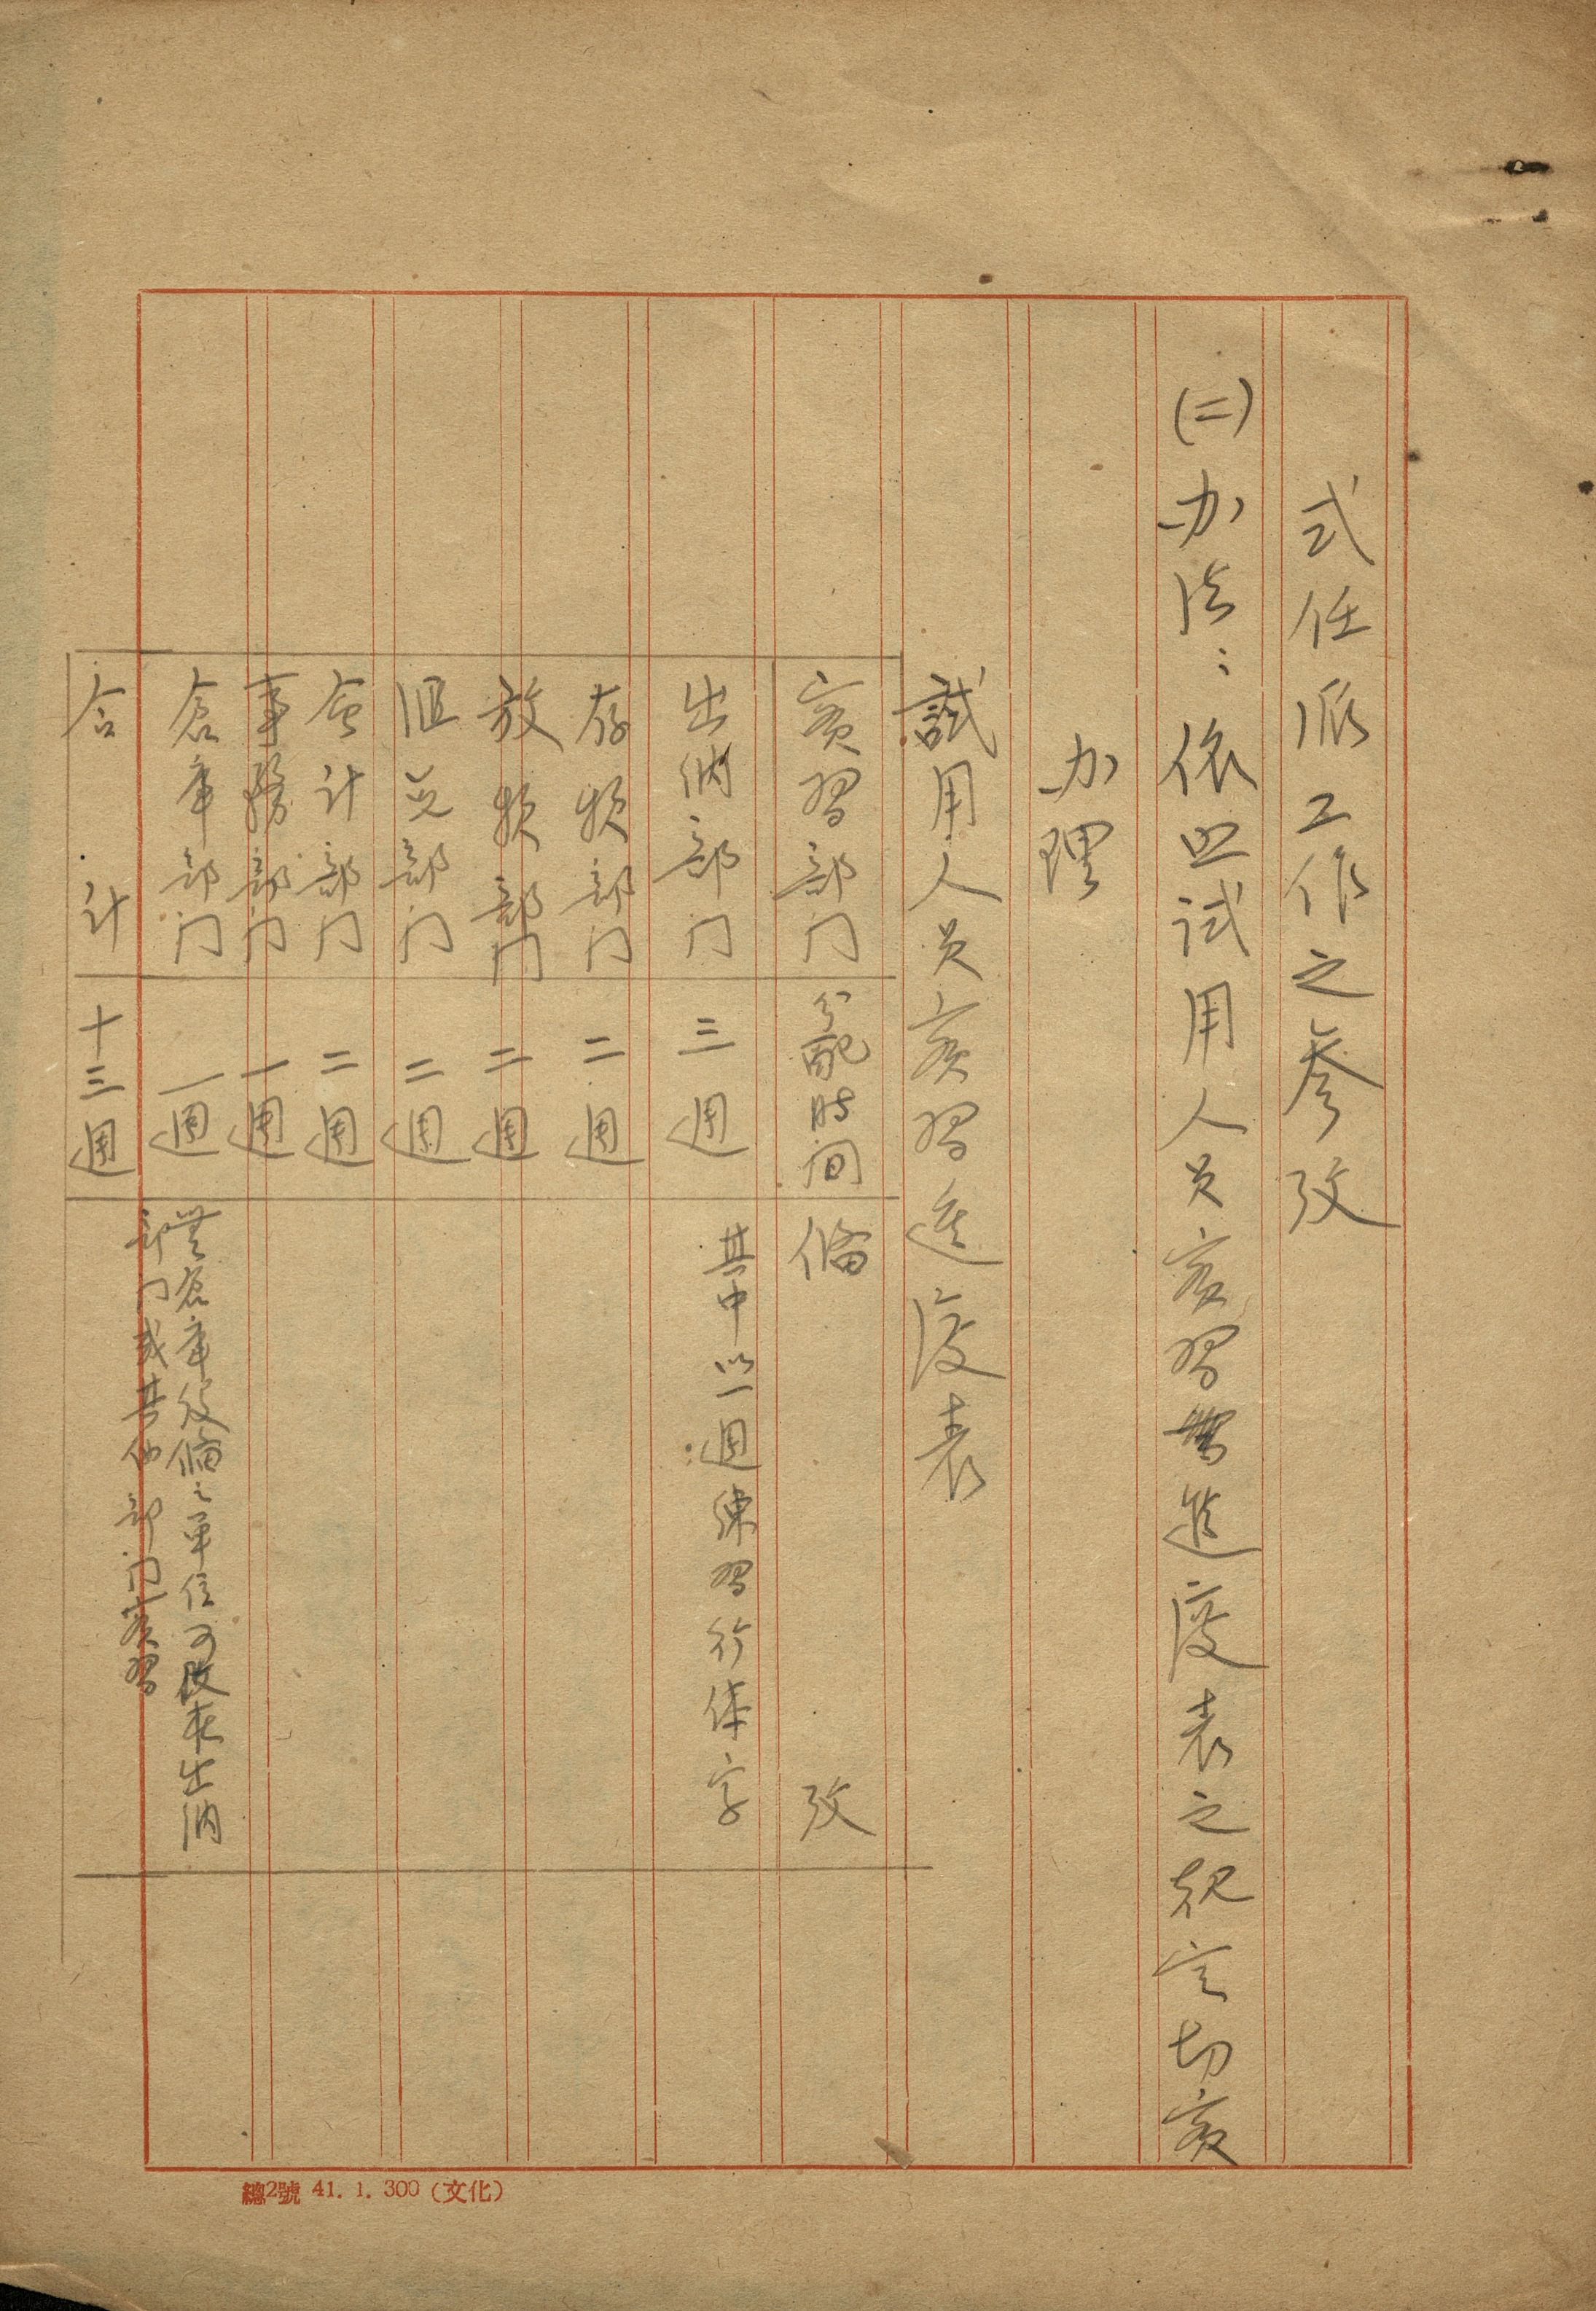 式任派工作之参攷
(二)办法：依照试用人員实習進度表之規定切实
办理
試用人員实習進度表
实習部门 分配時间 偹 攷
出納部门 三週 其中以一週練習行体字
存欵部门 二週
放欵部门 二週
汇兑部门 二週
会计部门 二週
事務部门 一週
倉库部门 一週 無倉库设偹之單位可改在出纳
部门或其他部门实習
合計 十三週
總2號 41. 1. 300 (文化)